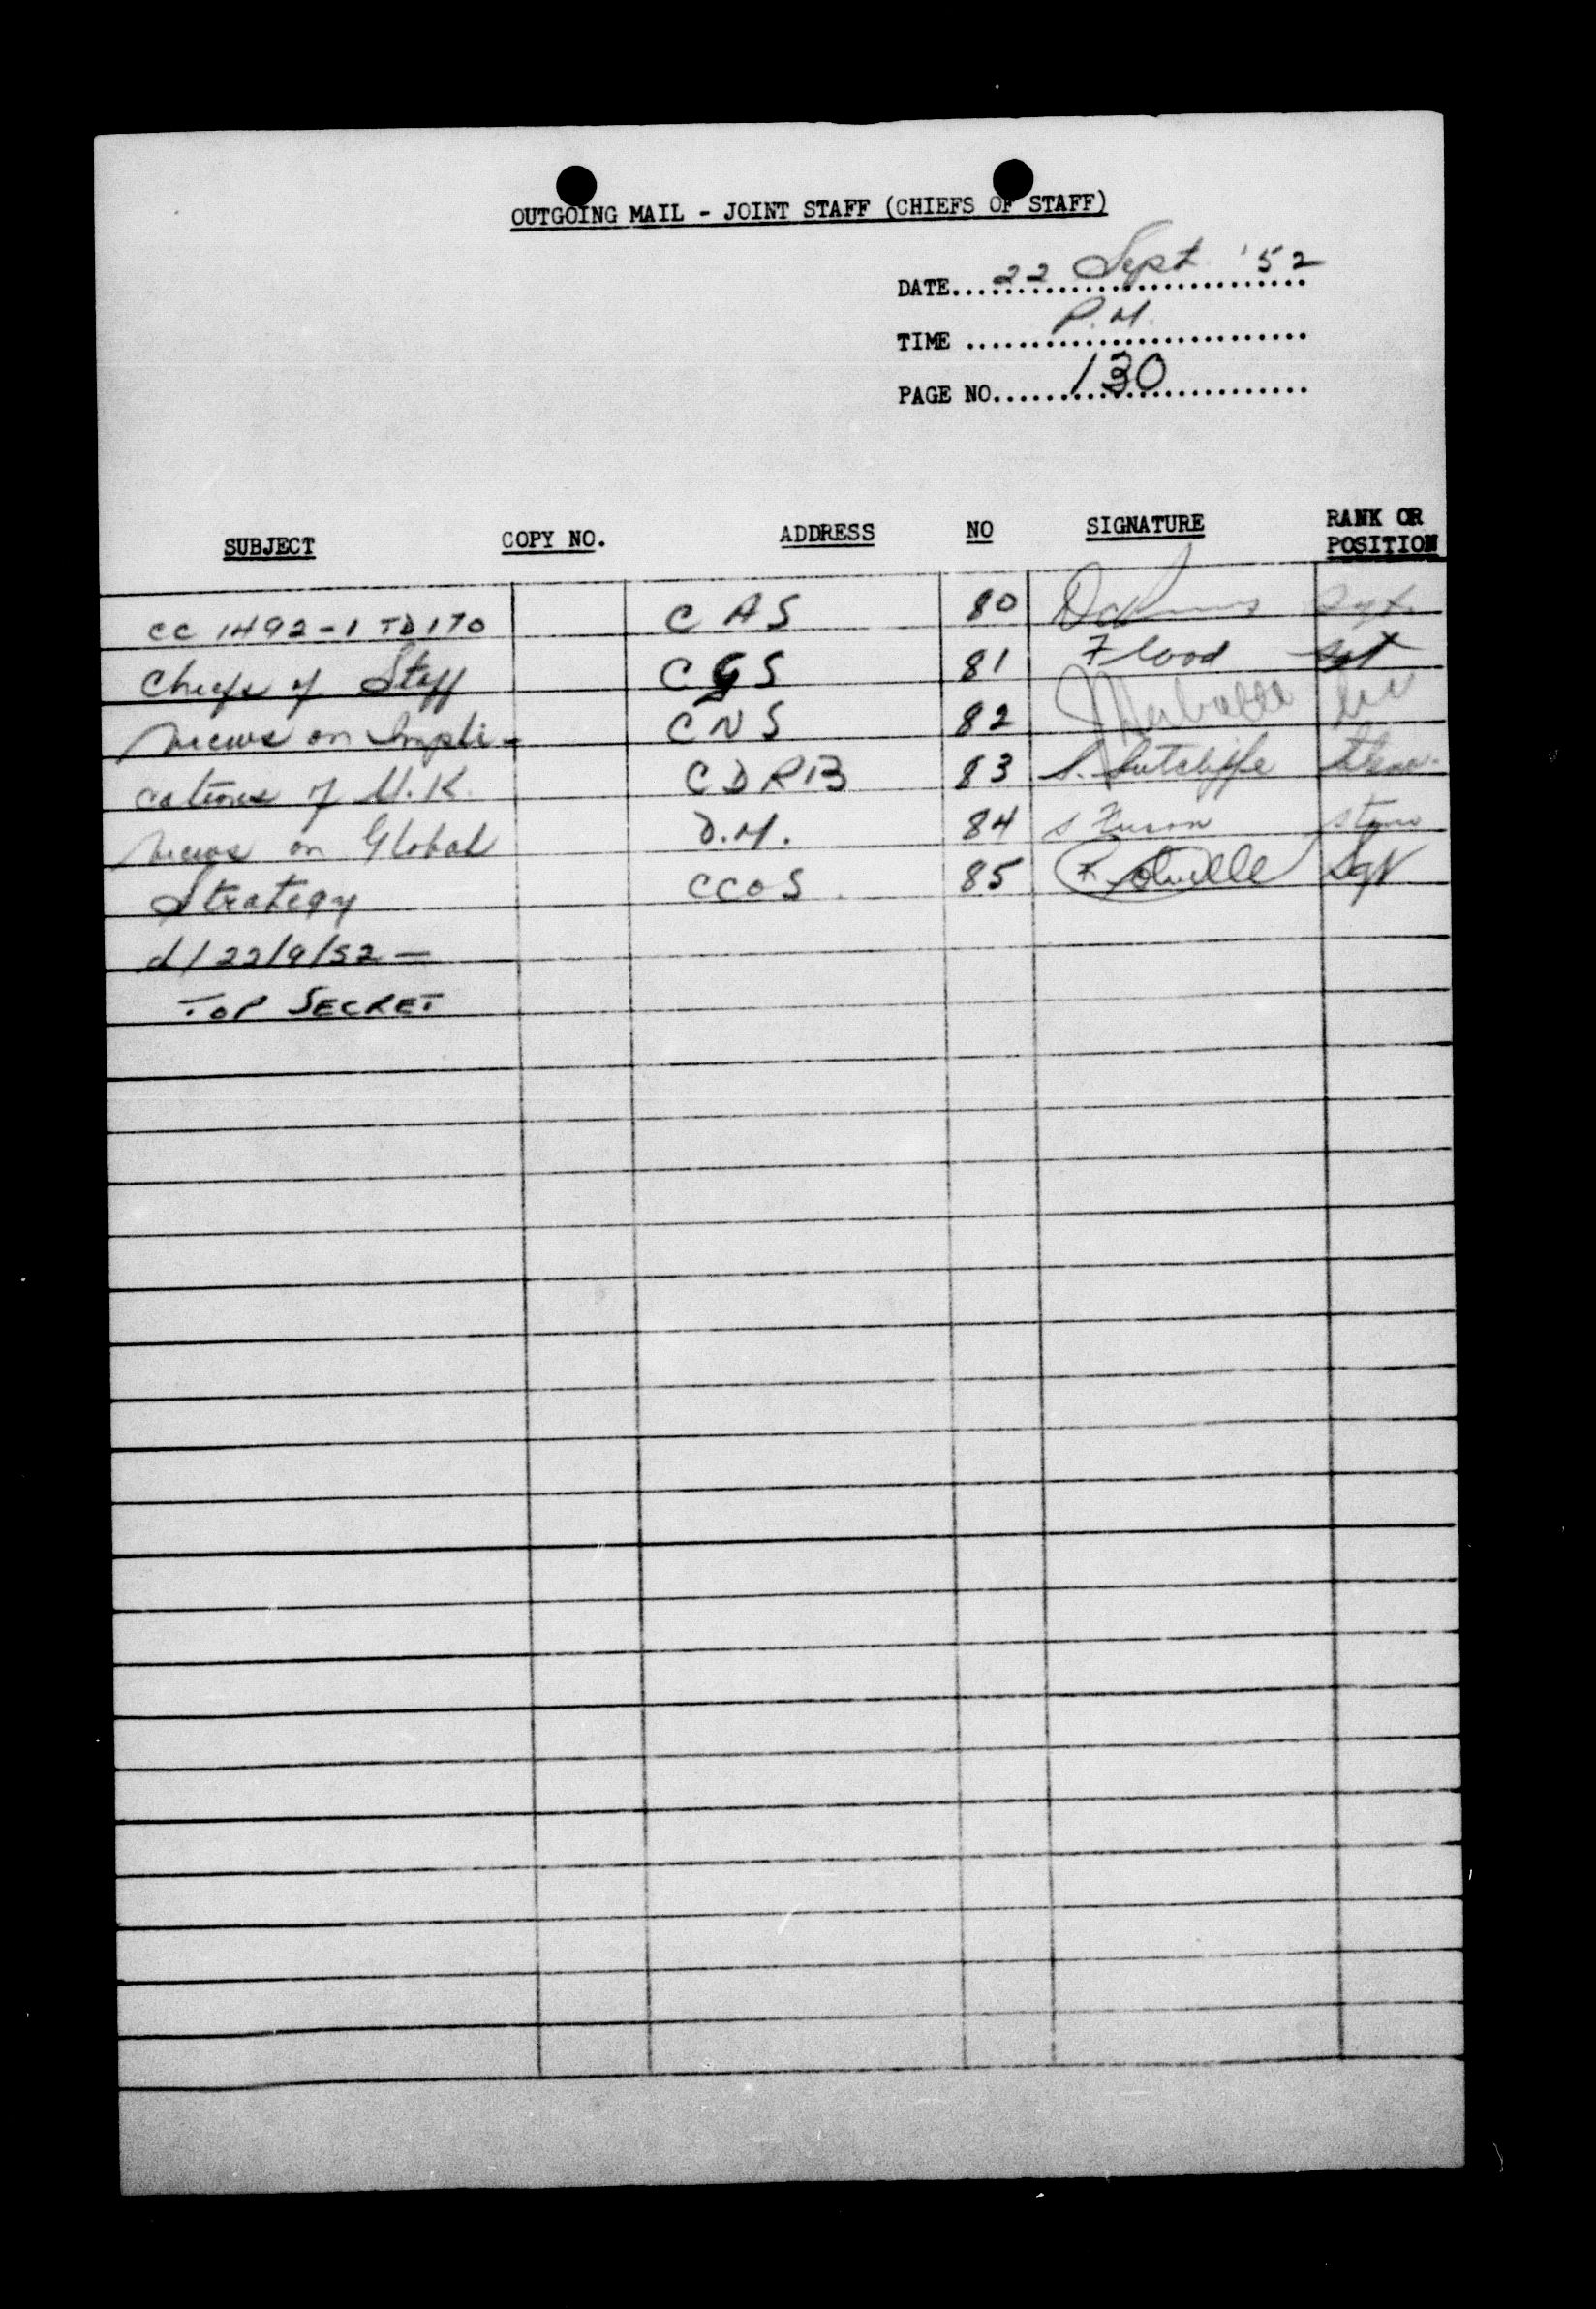 OUTGOING MAIL - JOINT STAFF (CHIEFS OF STAFF)
DATE.... 22 Sept '52
TIME .... P.M.
PAGE NO.... 130
SUBJECT COPY NO. ADDRESS NO SIGNATURE RANK OR POSITION
CC 1492-1 TD 170 CAS 80 Sgt.
Chiefs of Staff CGS 81 Flood Sgt
Views on Impli- CNS 82
cations of U.K. CDRB 83 S. Sutcliffe Steno.
Views on Global D.M. 84 Steno
Strategy CCOS 85 Sgt
d/22/9/52 —
TOP SECRET